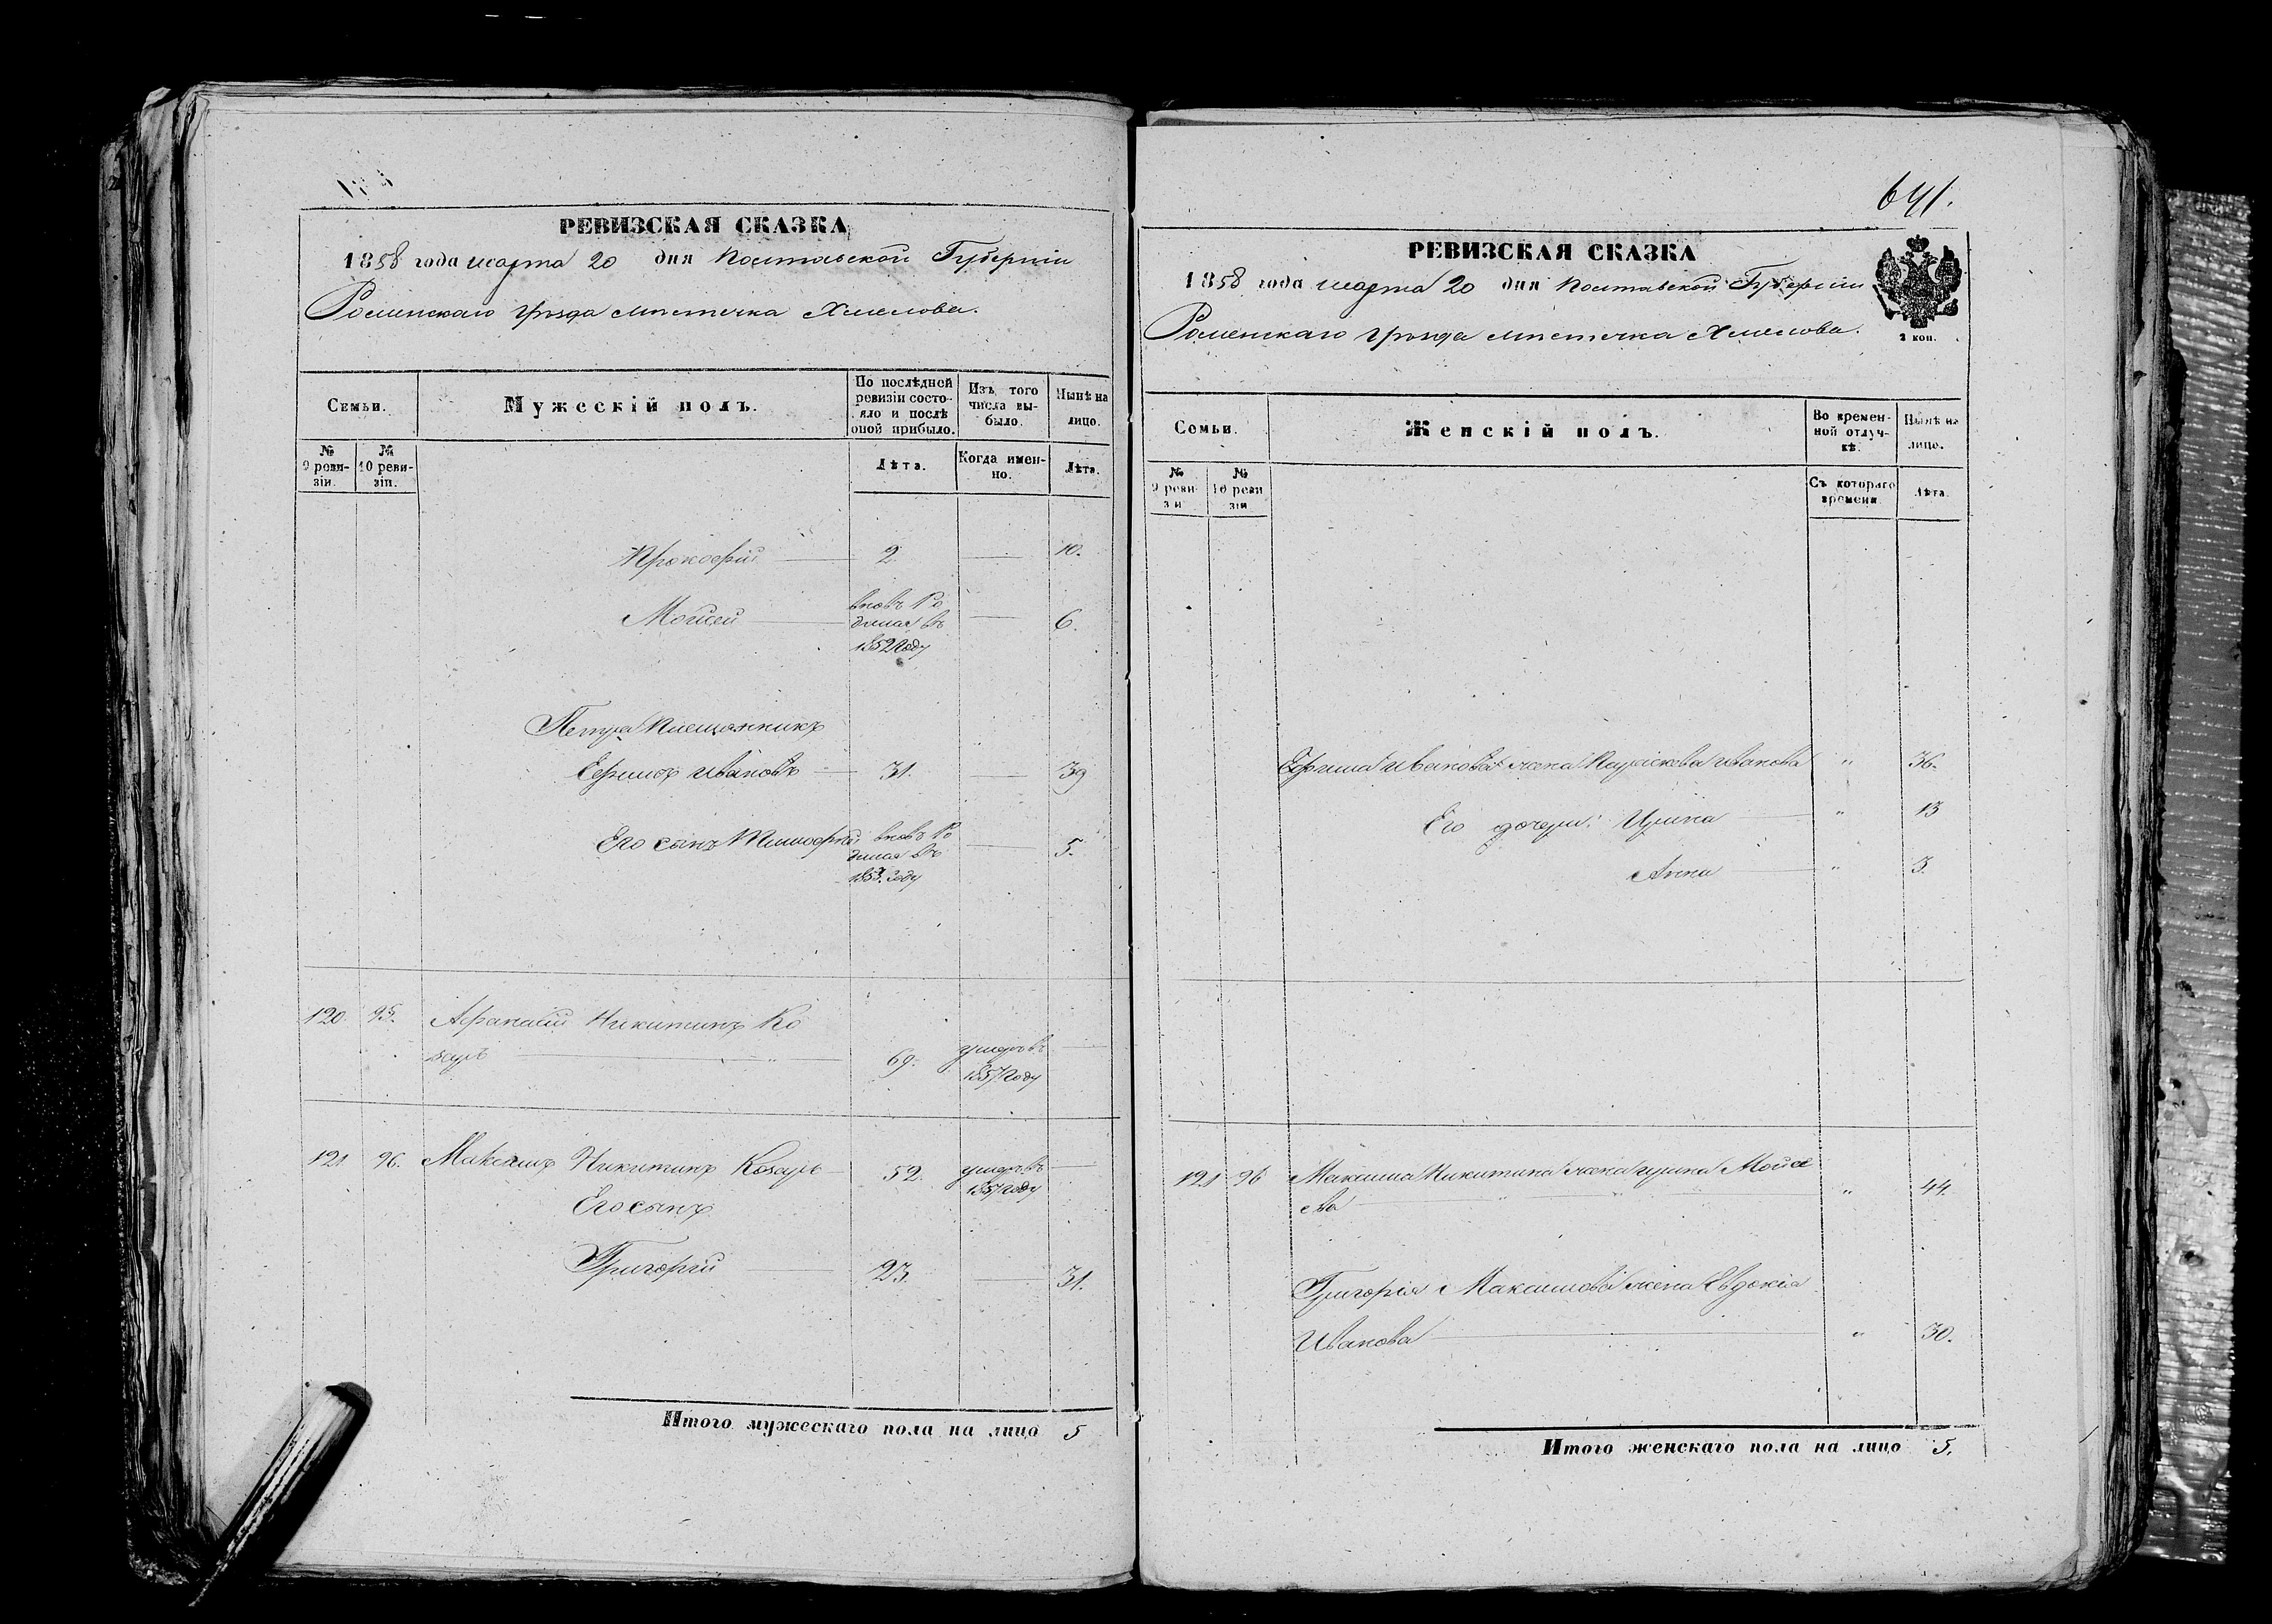 РЕВИЗСКАЯ СКАЗКА
1858 года марта 20 дня Полтавской Губерніи
Роменскаго уѣзда мѣстечка Хмелова.
Семьи.
Мужескій полъ.
По послѣдней ревизіи состояло и послѣ оной прибыло.
Изъ того числа выбыло.
Нынѣ на лицо.
№ 9 ревизіи.
№ 10 ревизіи.
Лѣта.
Когда именно.
Лѣта.
Прокофій 2. 10.
Мойсей вновь Ро
дился въ 6.
1852 году
Петра Племянникъ
Ефимъ Ивановъ 31. 39
Его сынъ Тимофей вновь Ро
дился въ 5.
1853. году
120. 95. Афанасій Никитинъ Ко
заръ " 69. умеръ въ
1857 году
121 96. Максимъ Никитинъ Козаръ 52. умеръ въ
1857 году
Его сынъ
Григорій 23. 31.
Итого мужескаго пола на лицо 5
641.
РЕВИЗСКАЯ СКАЗКА
1858 года марта 20 дня Полтавской Губерніи
Роменскаго уѣзда мѣстечка Хмелова.
2 коп.
Семьи.
Женскій полъ.
Во временной отлучкѣ.
Нынѣ на лицо.
№ 9 ревизіи
№ 10 ревизіи
Съ котораго времени.
Лѣта.
Ефима Иванова жена Параскева Иванова " 36.
Его дочери: Ирина " 13
Анна " 3.
121 96 Максима Никитина жена Ирина Мойсе
ева " " 44.
Григорія Максимова жена Евдокія
Иванова " 30.
Итого женскаго пола на лицо 5.